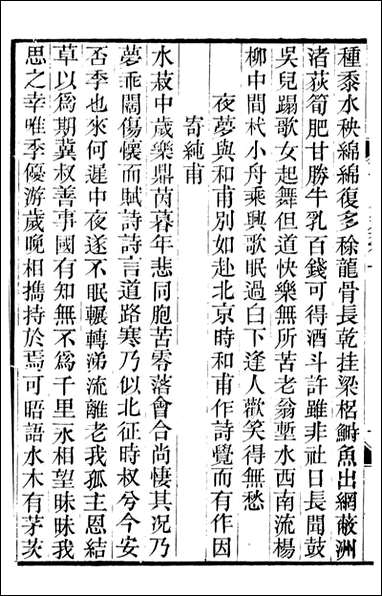 種黍水秧綿綿復多稌龍骨長乾挂梁梠鰣魚出網蔽洲
渚荻筍肥甘勝牛乳百錢可得酒斗許雖非社日長聞鼓
吳兒蹋歌女起舞但道快樂無所苦老翁塹水西南流楊
柳中間杙小舟乘興歌眠過白下逢人歡笑得無愁
夜夢與和甫別如赴北京時和甫作詩覺而有作因
寄純甫
水菽中歲樂鼎茵暮年悲同胞苦零落會合尚悽其况乃
夢乖闊傷懷而賦詩詩言道路寒乃似北征時叔兮今安
否季也來何遲中夜遂不眠輾轉涕流離老我孤主恩結
草以爲期冀叔善事國有知無不爲千里永相望昧昧我
思之幸唯季優游歲晚相攜持於焉可晤語水木有茅茨